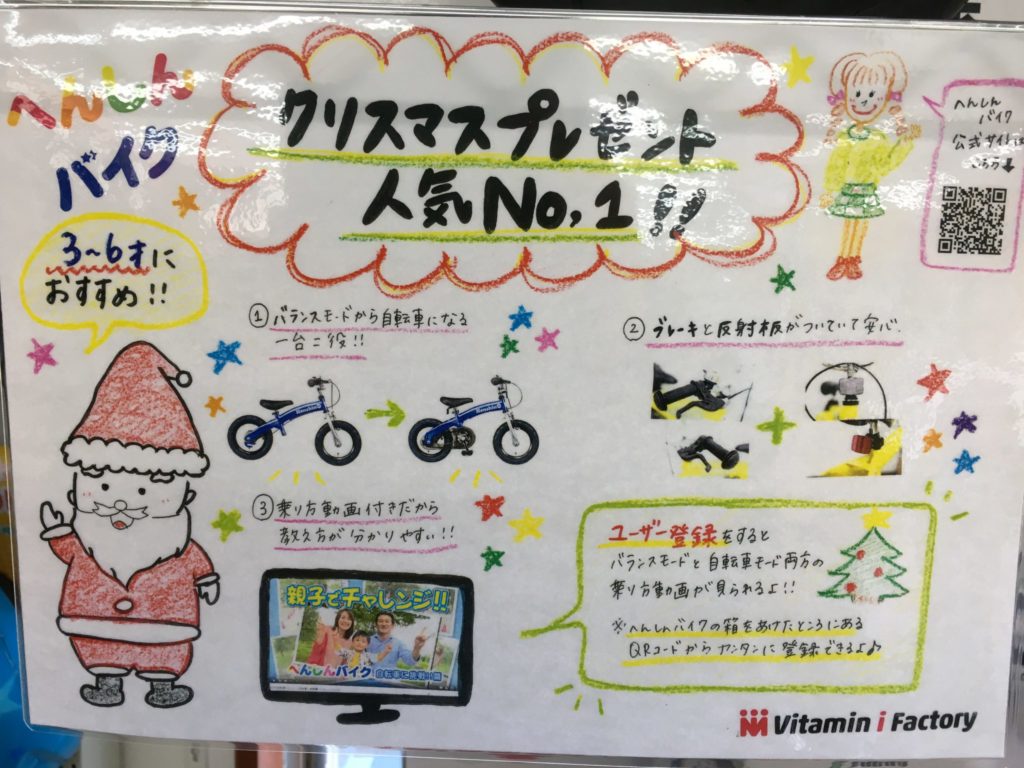 へんしん
バイク
クリスマスプレゼント
人気No,1!!
へんしん
バイク
公式サイトは
こちら↓
3~6才に
おすすめ!!
①バランスモードから自転車になる
一台二役!!
②ブレーキと反射板がついていて安心.
Henshin
Henshin
③乗り方動画付きだから
教え方が分かりやすい!!
親子でチャレンジ!!
へんしんバイク
ユーザー登録をすると
バランスモードと自転車モード両方の
乗り方動画が見られるよ!!
※へんしんバイクの箱をあけたところにある
QRコードからカンタンに登録できるよ♪
Vitamin i Factory